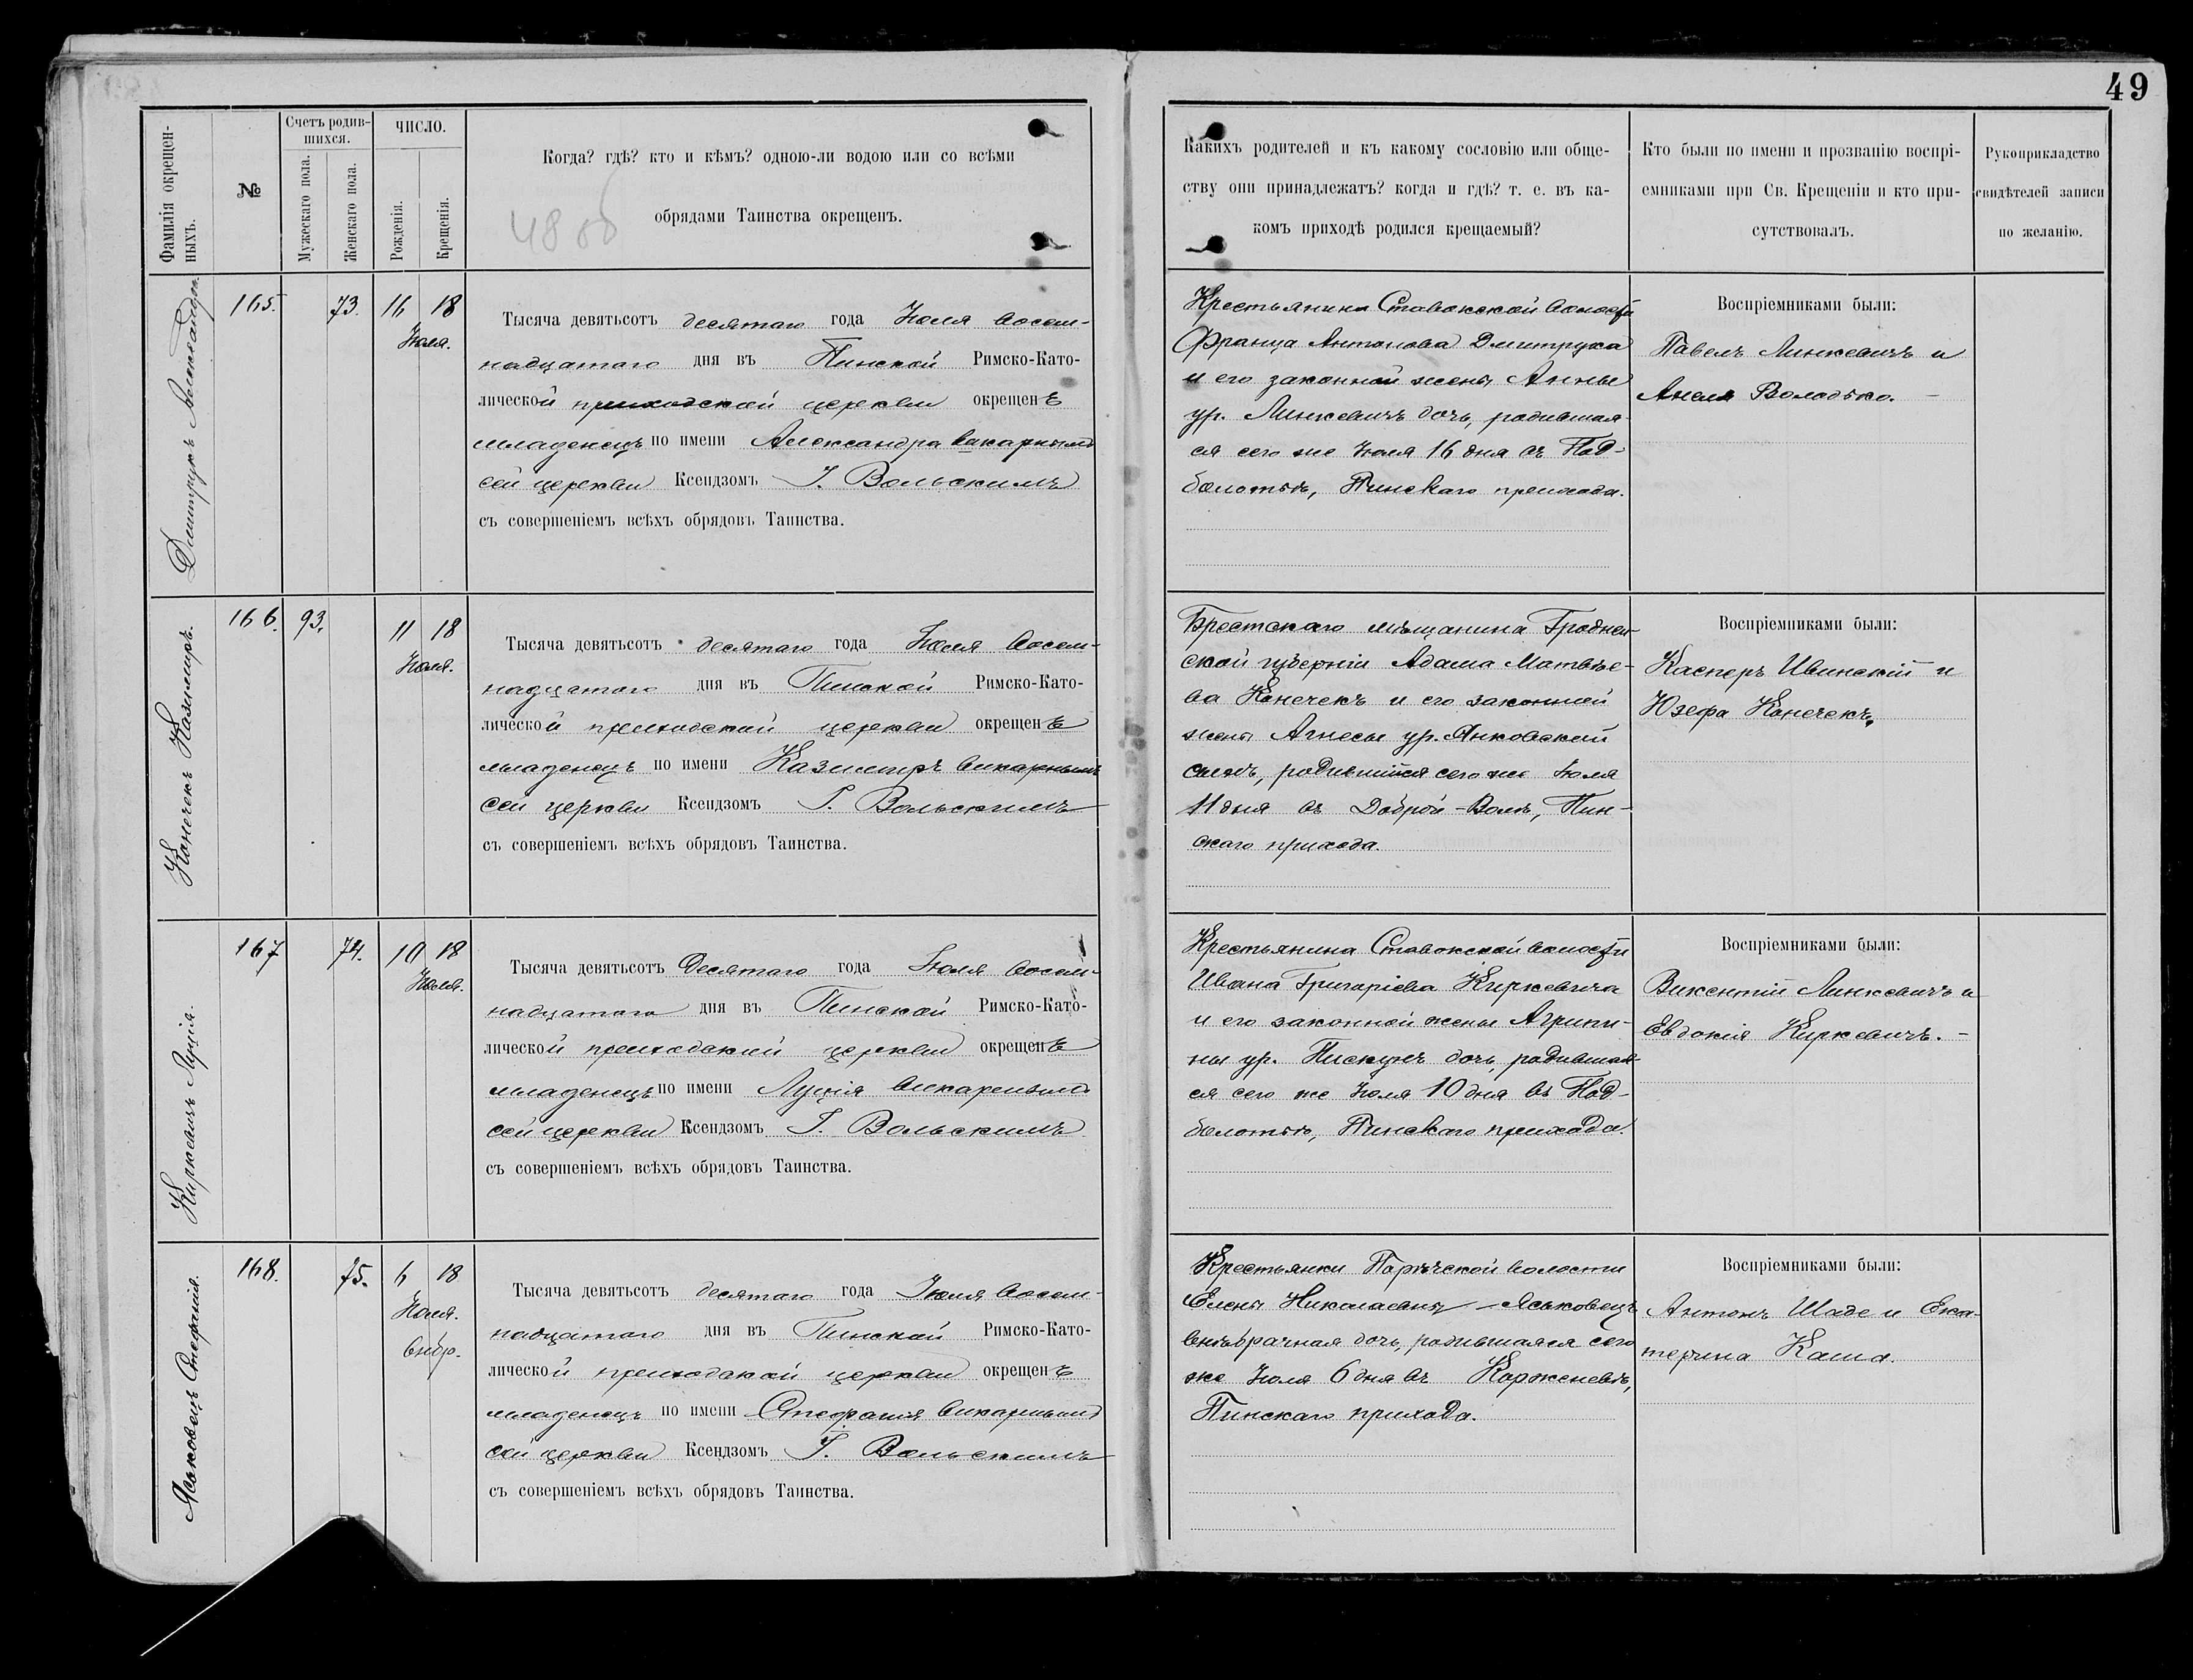 49
Фамилія окрещен-
ныхъ.
№
Счетъ родив-
шихся.
Мужескаго пола.
Женскаго пола.
ЧИСЛО.
Рожденія.
Крещенія.
Когда? гдѣ? кто и кѣмъ? одною-ли водою или со всѣми
обрядами Таинства окрещенъ.
48 об
Какихъ родителей и къ какому сословію или обще-
ству они принадлежатъ? когда и гдѣ? т. е. въ ка-
комъ приходѣ родился крещаемый?
Кто были по имени и прозванію воспрі-
емниками при Св. Крещеніи и кто при-
сутствовалъ.
Рукоприкладство
свидѣтелей записи
по желанію.
Дмитрукъ Александра.
165.
73.
16 18
Іюля.
Тысяча девятьсотъ десятаго года Іюля восем-
надцатаго дня въ Пинской Римско-Като-
лической приходской церкви окрещенъ
младенецъ по имени Александра викарнымъ
сей церкви Ксендзомъ І. Вольскимъ
съ совершеніемъ всѣхъ обрядовъ Таинства.
Крестьянина Ставокской волости
Франца Антонова Дмитрука
и его законной жены Анны
ур. Линкевичъ дочь, родившая-
ся сего же Іюля 16 дня въ Под-
болотьѣ, Пинскаго прихода.
Воспріемниками были:
Павелъ Линкевичъ и
Анеля Володько.
Конечекъ Казимиръ.
166.
93.
11 18
Іюля.
Тысяча девятьсотъ десятаго года Іюля восем-
надцатаго дня въ Пинской Римско-Като-
лической приходской церкви окрещенъ
младенецъ по имени Казимиръ викарнымъ
сей церкви Ксендзомъ І. Вольскимъ
съ совершеніемъ всѣхъ обрядовъ Таинства.
Брестскаго мѣщанина Гроднен-
ской губерніи Адама Матвѣе-
ва Конечекъ и его законной
жены Агнесы ур. Янковской
сынъ, родившійся сего же Іюля
11 дня въ Доброй-Волѣ, Пин-
скаго прихода.
Воспріемниками были:
Касперъ Ивинскій и
Юзефа Конечекъ.
Киркевичъ Луція.
167
74.
10 18
Іюля.
Тысяча девятьсотъ Десятаго года Іюля восем-
надцатаго дня въ Пинской Римско-Като-
лической приходской церкви окрещенъ
младенецъ по имени Луція викарнымъ
сей церкви Ксендзомъ І. Вольскимъ
съ совершеніемъ всѣхъ обрядовъ Таинства.
Крестьянина Ставокской волости
Ивана Григоріева Киркевича
и его законной жены Агрипи-
ны ур. Пискунъ дочь, родившая-
ся сего же Іюля 10 дня въ Под-
болотьѣ, Пинскаго прихода.
Воспріемниками были:
Викентій Линкевичъ и
Евдокія Киркевичъ.
Яськовецъ Стефанія.
168.
75.
6 18
Іюля.
внѣбр.
Тысяча девятьсотъ десятаго года Іюля восем-
надцатаго дня въ Пинской Римско-Като-
лической приходской церкви окрещенъ
младенецъ по имени Стефанія викарнымъ
сей церкви Ксендзомъ І. Вольскимъ
съ совершеніемъ всѣхъ обрядовъ Таинства.
Крестьянки Порѣчской волости
Елены Николаевны Яськовецъ
внѣбрачная дочь, родившаяся сего
же Іюля 6 дня въ Корженевѣ,
Пинскаго прихода.
Воспріемниками были:
Антонъ Шаде и Ека-
терина Каша.